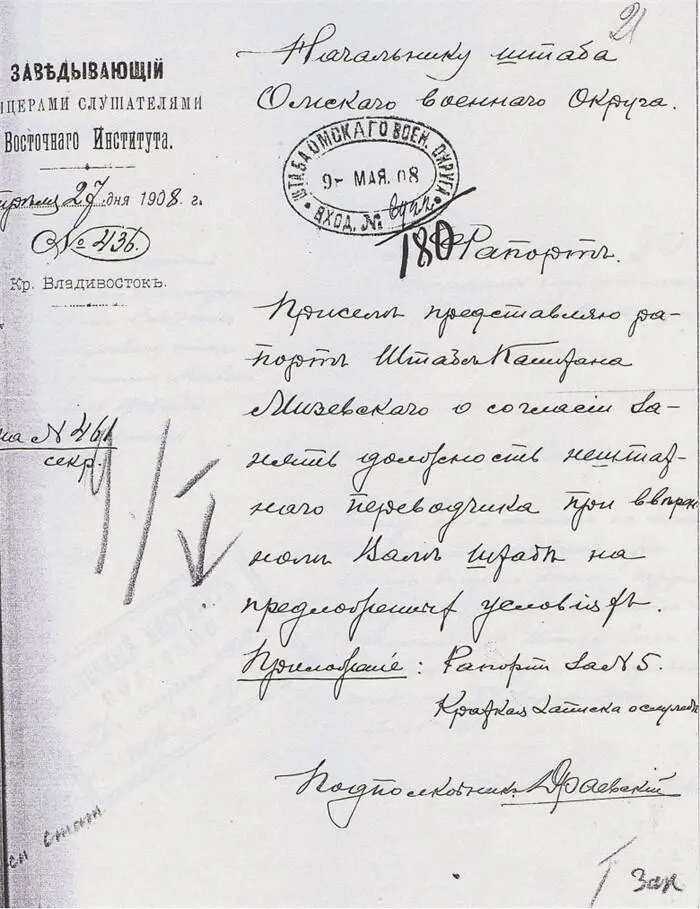 21
ЗАВѢДЫВАЮЩІЙ
ЦЕРАМИ СЛУШАТЕЛЯМИ
Восточнаго Института.
27 дня 1908 г.
№ 436.
Кр. Владивостокъ.
на № 461
секр.
Начальнику штаба
Омскаго военнаго Округа.
ШТАБА ОМСКАГО ВОЕН. ОКРУГА
9- МАЯ. 08
ВХОД. №
180
Рапортъ.
При семъ представляю ра-
портъ Штабсъ Капитана
Мизевскаго о согласіи за-
нять должность нештат-
наго переводчика при ввѣрен-
номъ Вамъ штабѣ на
предложенныхъ условіяхъ.
Приложеніе: Рапортъ за № 5.
Краткая записка о службѣ
Подполковникъ